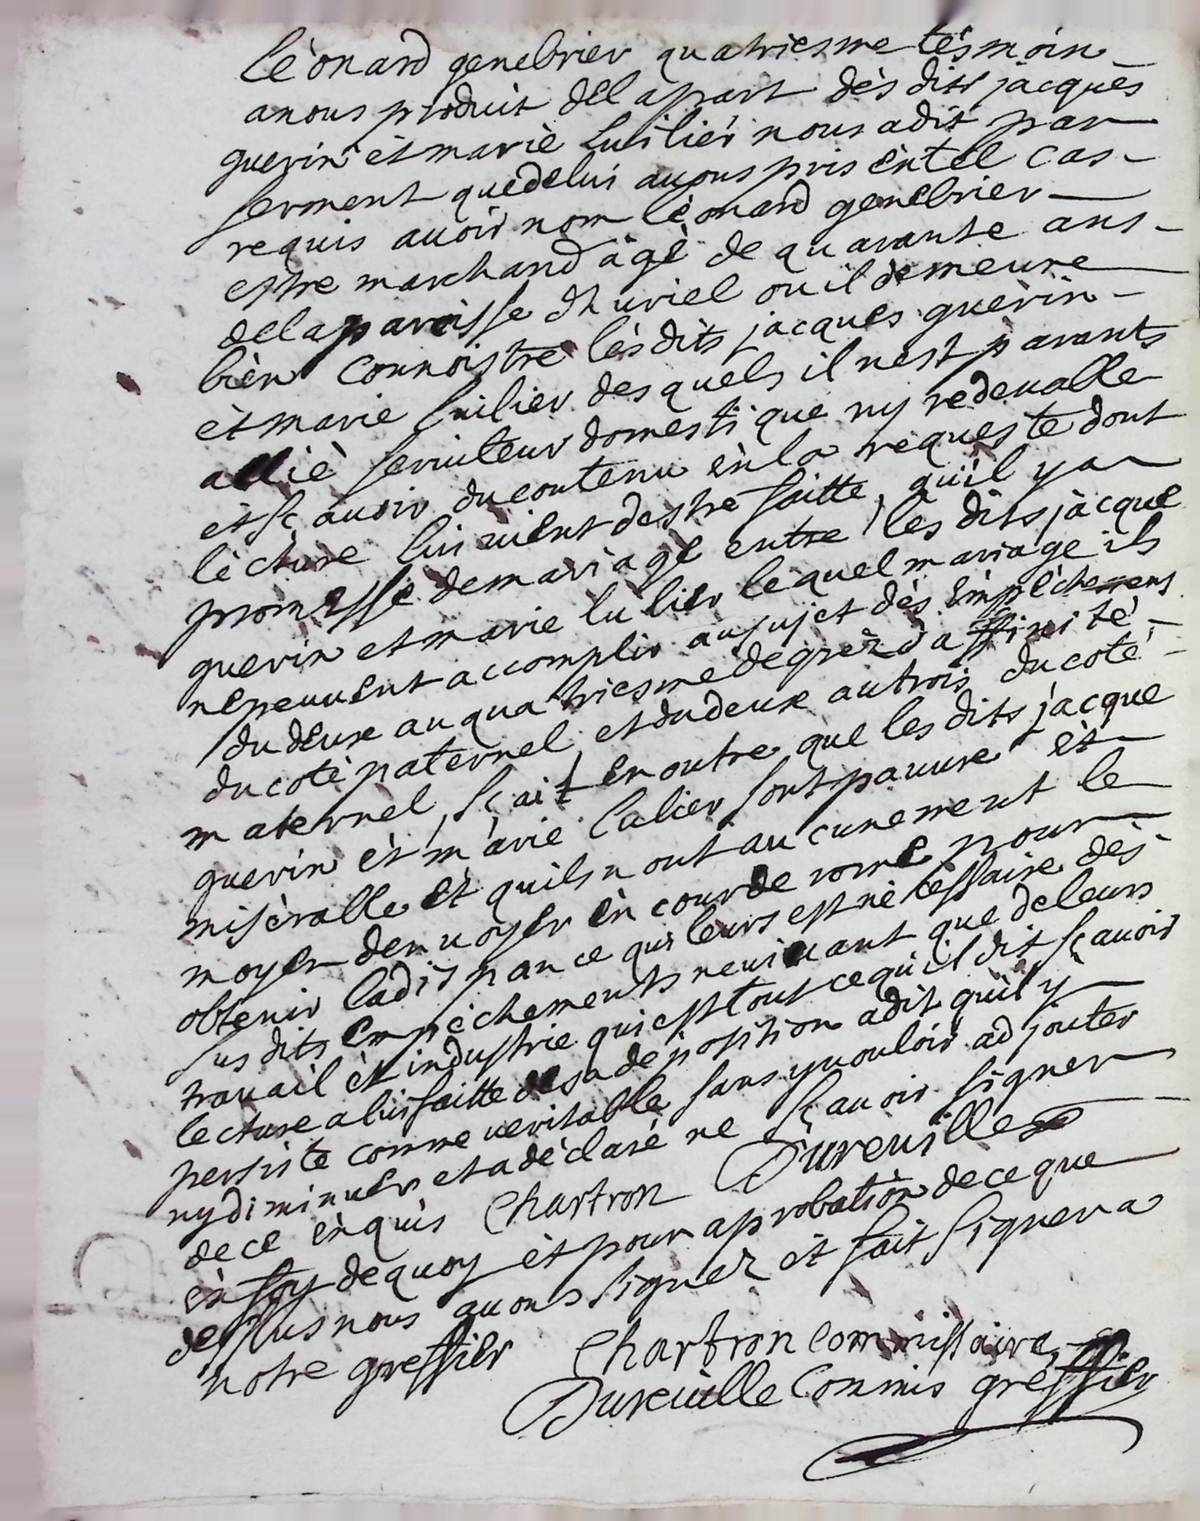 Léonard genebrier quatriesme tésmoin
anous produit delapart dès dits jacques
guerin et marie Luilier nous adit par
serment quedelui auons pris èntel cas
requis auoir nom lèonard genebrier
estre marchand agé de quarante ans
delaparoisse dhuriel ou il demeure
bièn connoistre lèsdits jacques guerin
èt marie Luilier desquels il nest parants
allié seruiteur domestique ny redeualle
et sc auoir ducontenu èn la requeste dont
lècture lui uient destre faitte, quil y a
promesse demariage entre les dits jàcque
guerin et marie lulier lequel mariage ils
nepeuuent accomplir ausujet dès èmpèchemens
du deux au quatriesme degrez daffinité
du coté paternel et du deux au trois du coté
maternel, sçait en outre que les dits jacque
guerin èt marie Lulier sont pauure èt
misèralle et quils nont aucunement le
moyen denuoyer èn cour de rome pour
obtenir ladispance qui leurs est nécèssaire dès
susdits empèchements neuiuant que deleurs
trauail èt industrie qui est tout cequil dit sçauoir
lecture a lui faitte desa deposition adit quil y
persiste comme ueritable sans y uouloir adjouter
ny diminuer et a déclaré ne sçauoir signer
de ce ènquis Chartron Dureuille
èn foy dequoy èt pour aprobation de ce que
dessus nous auons signez èt fait signer a
notre greffier Chartron commissaire
Dureuille Commis greffier